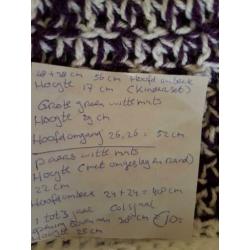 28 + 28 cm 56 cm Hoofdomtrek
Hoogte 17 cm (Kinderset)
Grote groen witte muts
Hoogte 29 cm
Hoofdomgang 26,26 = 52 cm
paars witte muts
Hoogte (met omgeslagen rand)
22 cm
Hoofdomtrek 24 + 24 = 48 cm
1 tot 3 jaar Colsjaal
38 cm = 10=
Hoogte 25 cm